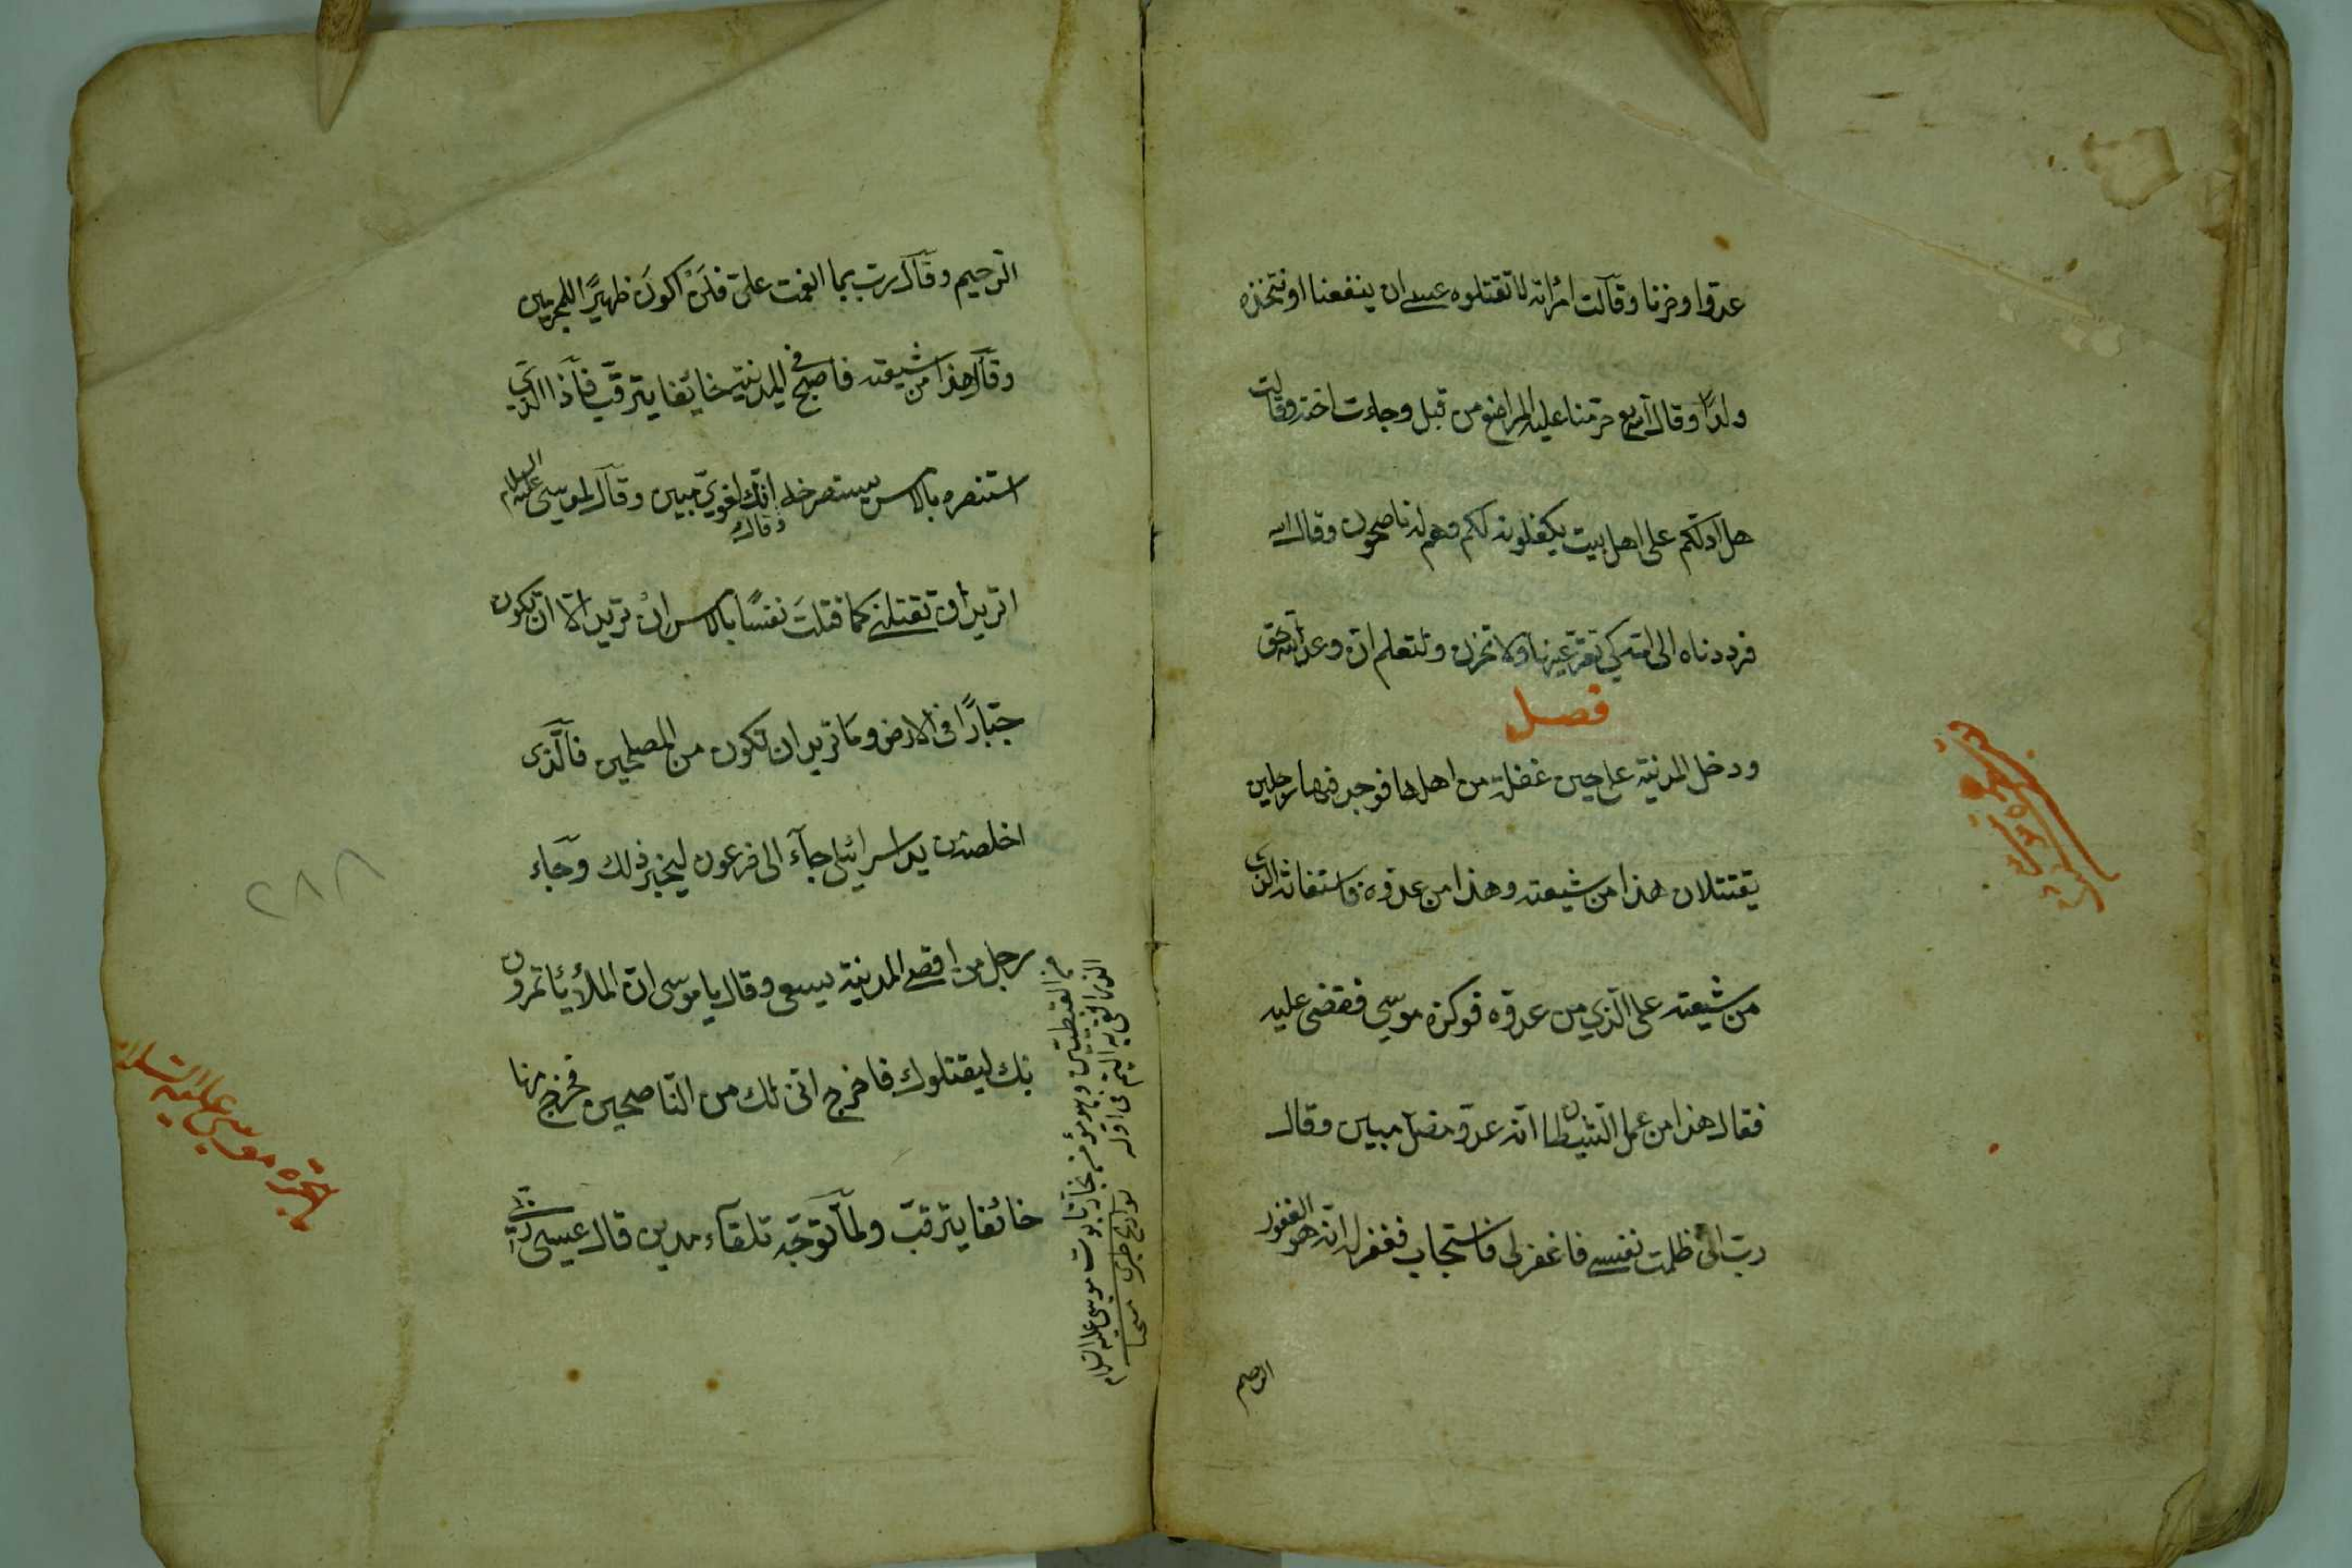 عدوّا وحزنا وقالت امرأته لا تقتلوه عسى ان ينفعنا او نتخذه
ولدًا وقال الله تع حرّمنا عليه المراضع من قبل وجاءت اخته وقالت
هل ادلّكم على اهل بيت يكفلونه لكم وهم له ناصحون وقال الله
فرددناه الى امّه كي تقرّ عينها ولا تحزن ولتعلم انّ وعد الله حق
فصل
ودخل المدنية على حين غفلة من اهلها فوجد فيها رجلين
يقتتلان هذا من شيعته وهذا من عدوّه فاستغاثه الذي
من شيعته على الّذي من عدوّه فوكزه موسى فقضى عليه
فقال هذا من عمل الشيطان انّه عدوّ مضل مبين وقال
ربّ انّى ظلمت نفسى فاغفرلى فاستجاب فغفر له انّه هو الغفور
الرحيم
الرّحيم وقال ربّ بما انعمت علىّ فلَنْ اكونَ ظهيرًا للمجرمين
وقال هذا من شيعته فاصبح في المدنية خائفا يترقّب فاذا الذي
استنصره بالامس يستصرخه وقال انّك لغويّ مبين وقال لموسى عليه السلام
اتريد ان تقتلنى كما قتلتَ نفسًا بالامس انْ تريد الّا ان تكون
جبّارًا فى الارض وما تريد ان تكون من المصلحين فالّذى
اخلصته من يد اسرائيلى جآء الى فرعون ليخبر ذلك وجاء
رجل من اقصى المدنية يسعى وقال يا موسى انّ الملأ يأتمرون
بك ليقتلوك فاخرج انّى لك من النّاصحين فخرج منها
خائفا يترقبّ ولمّا توجّه تلقآء مدين قال عيسى ربّى
من القبطيين وهو مؤمن نجار تابوت موسى عليه السلام
تواريخ طبرى
موسى عليه السلام
٢٨٨